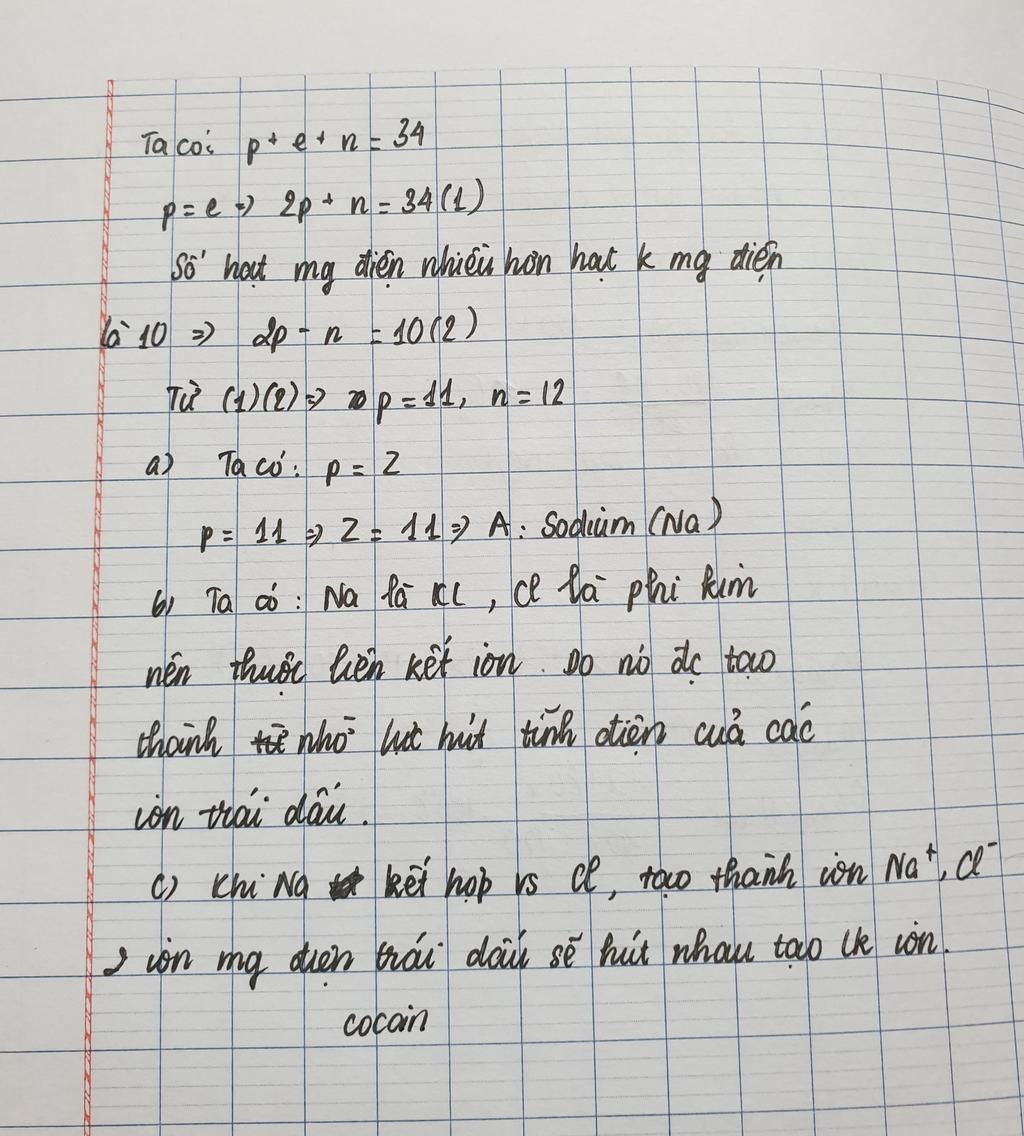 Ta có: p + e + n = 34
p = e => 2p + n = 34 (1)
Số hạt mg điện nhiều hơn hạt k mg điện
là 10 => 2p - n = 10 (2)
Từ (1)(2) => p = 11, n = 12
a) Ta có: p = Z
p = 11 => Z = 11 => A: Sodium (Na)
b) Ta có: Na là KL, Cl là phi kim
nên thuộc liên kết ion. Do nó đc tạo
thành từ nhờ lực hút tĩnh điện của các
ion trái dấu.
c) Khi Na kết hợp vs Cl, tạo thành ion Na⁺, Cl⁻
2 ion mg điện trái dấu sẽ hút nhau tạo lk ion.
cocain